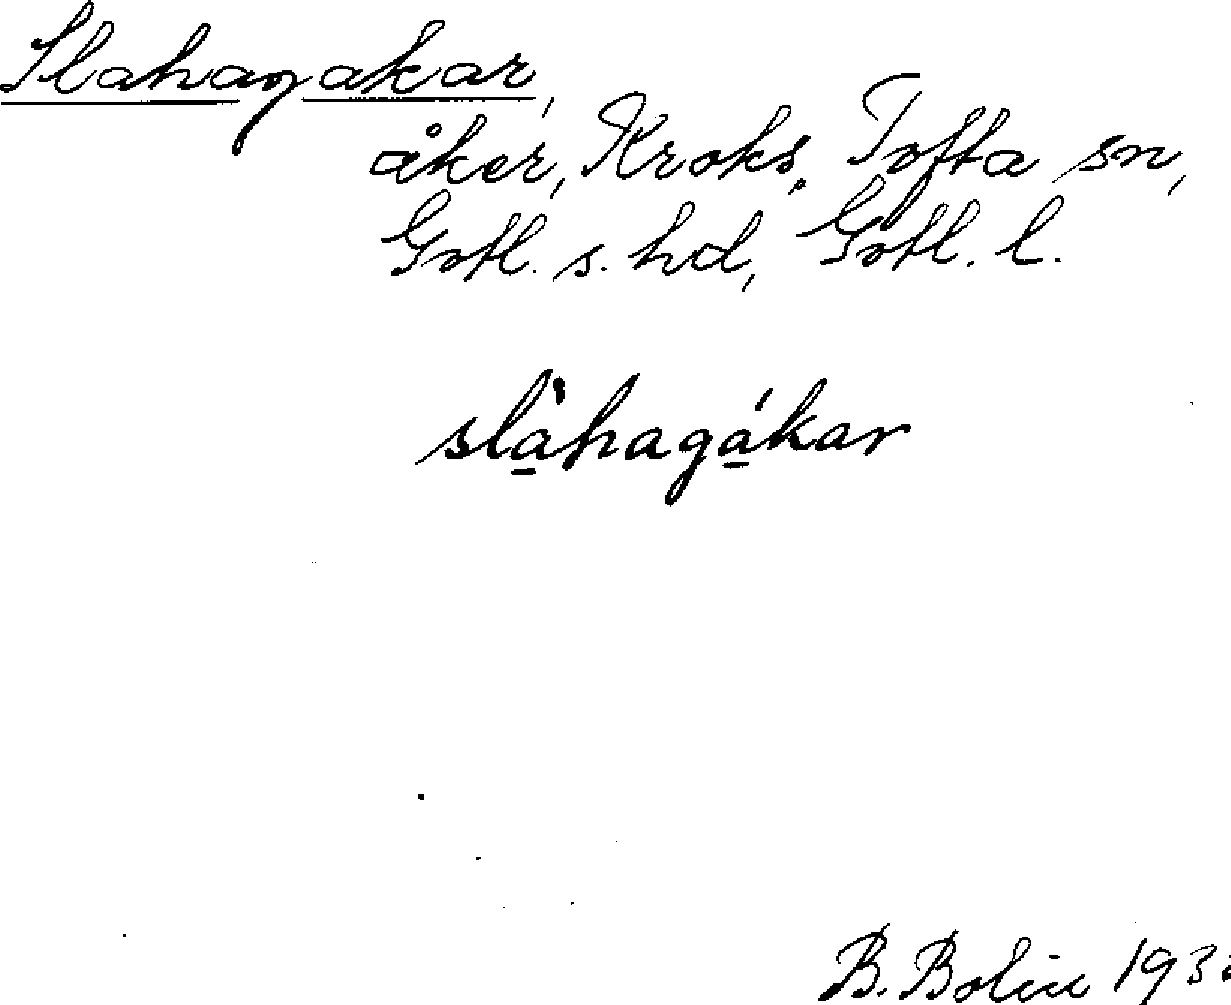 Slahagakar,
åker, Kroks, Tofta sn,
Gotl. s. hd, Gotl. l.
slàhagákar
B. Bolin